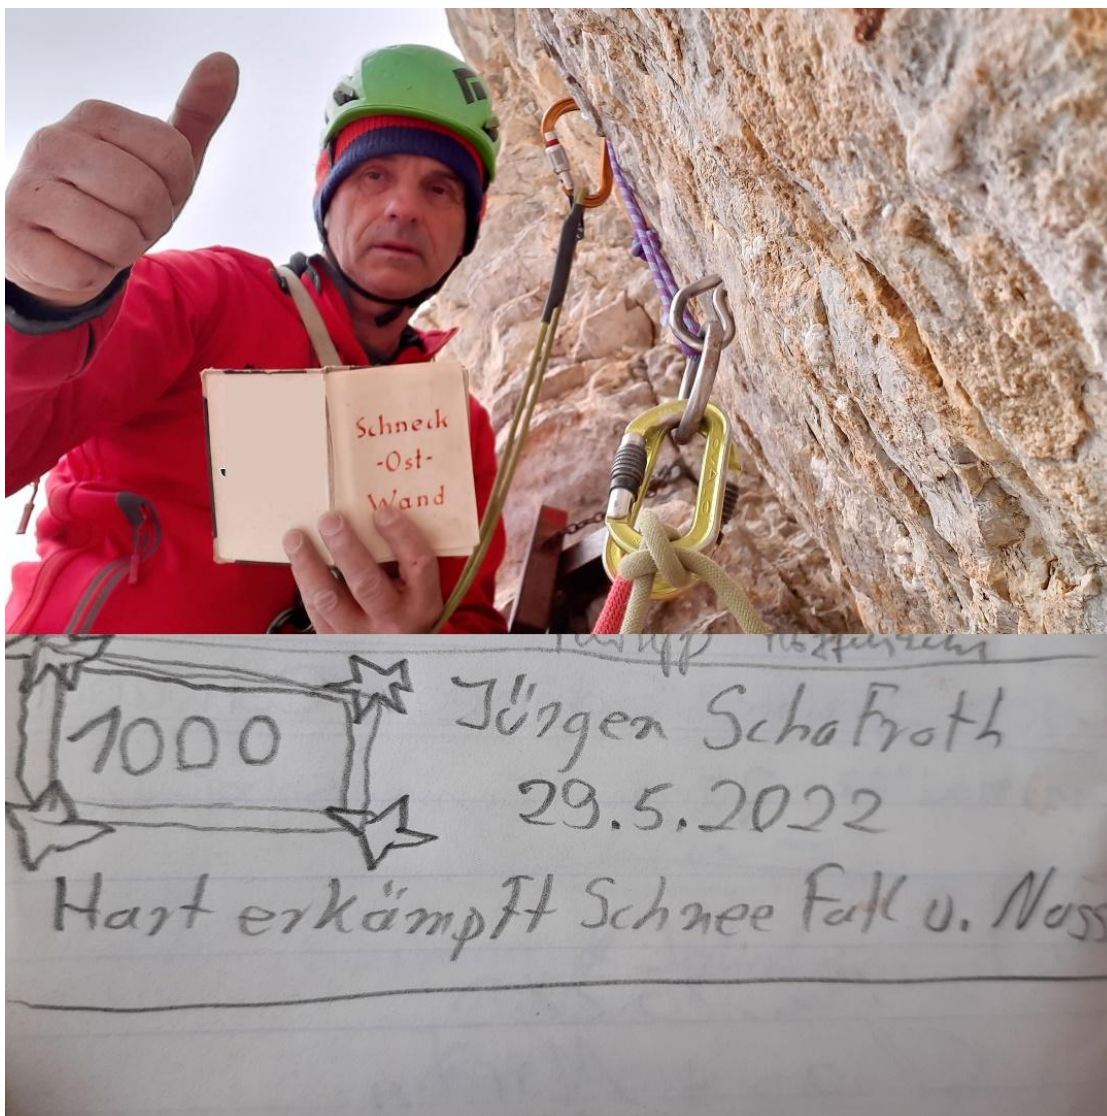 Schneck
-Ost-
Wand
1000
Jürgen Schafroth
29.5.2022
Hart erkämpft Schnee Fall u. Nass